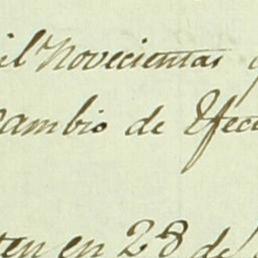 il Novecientas
Cambio de Efec
ten en 28 de